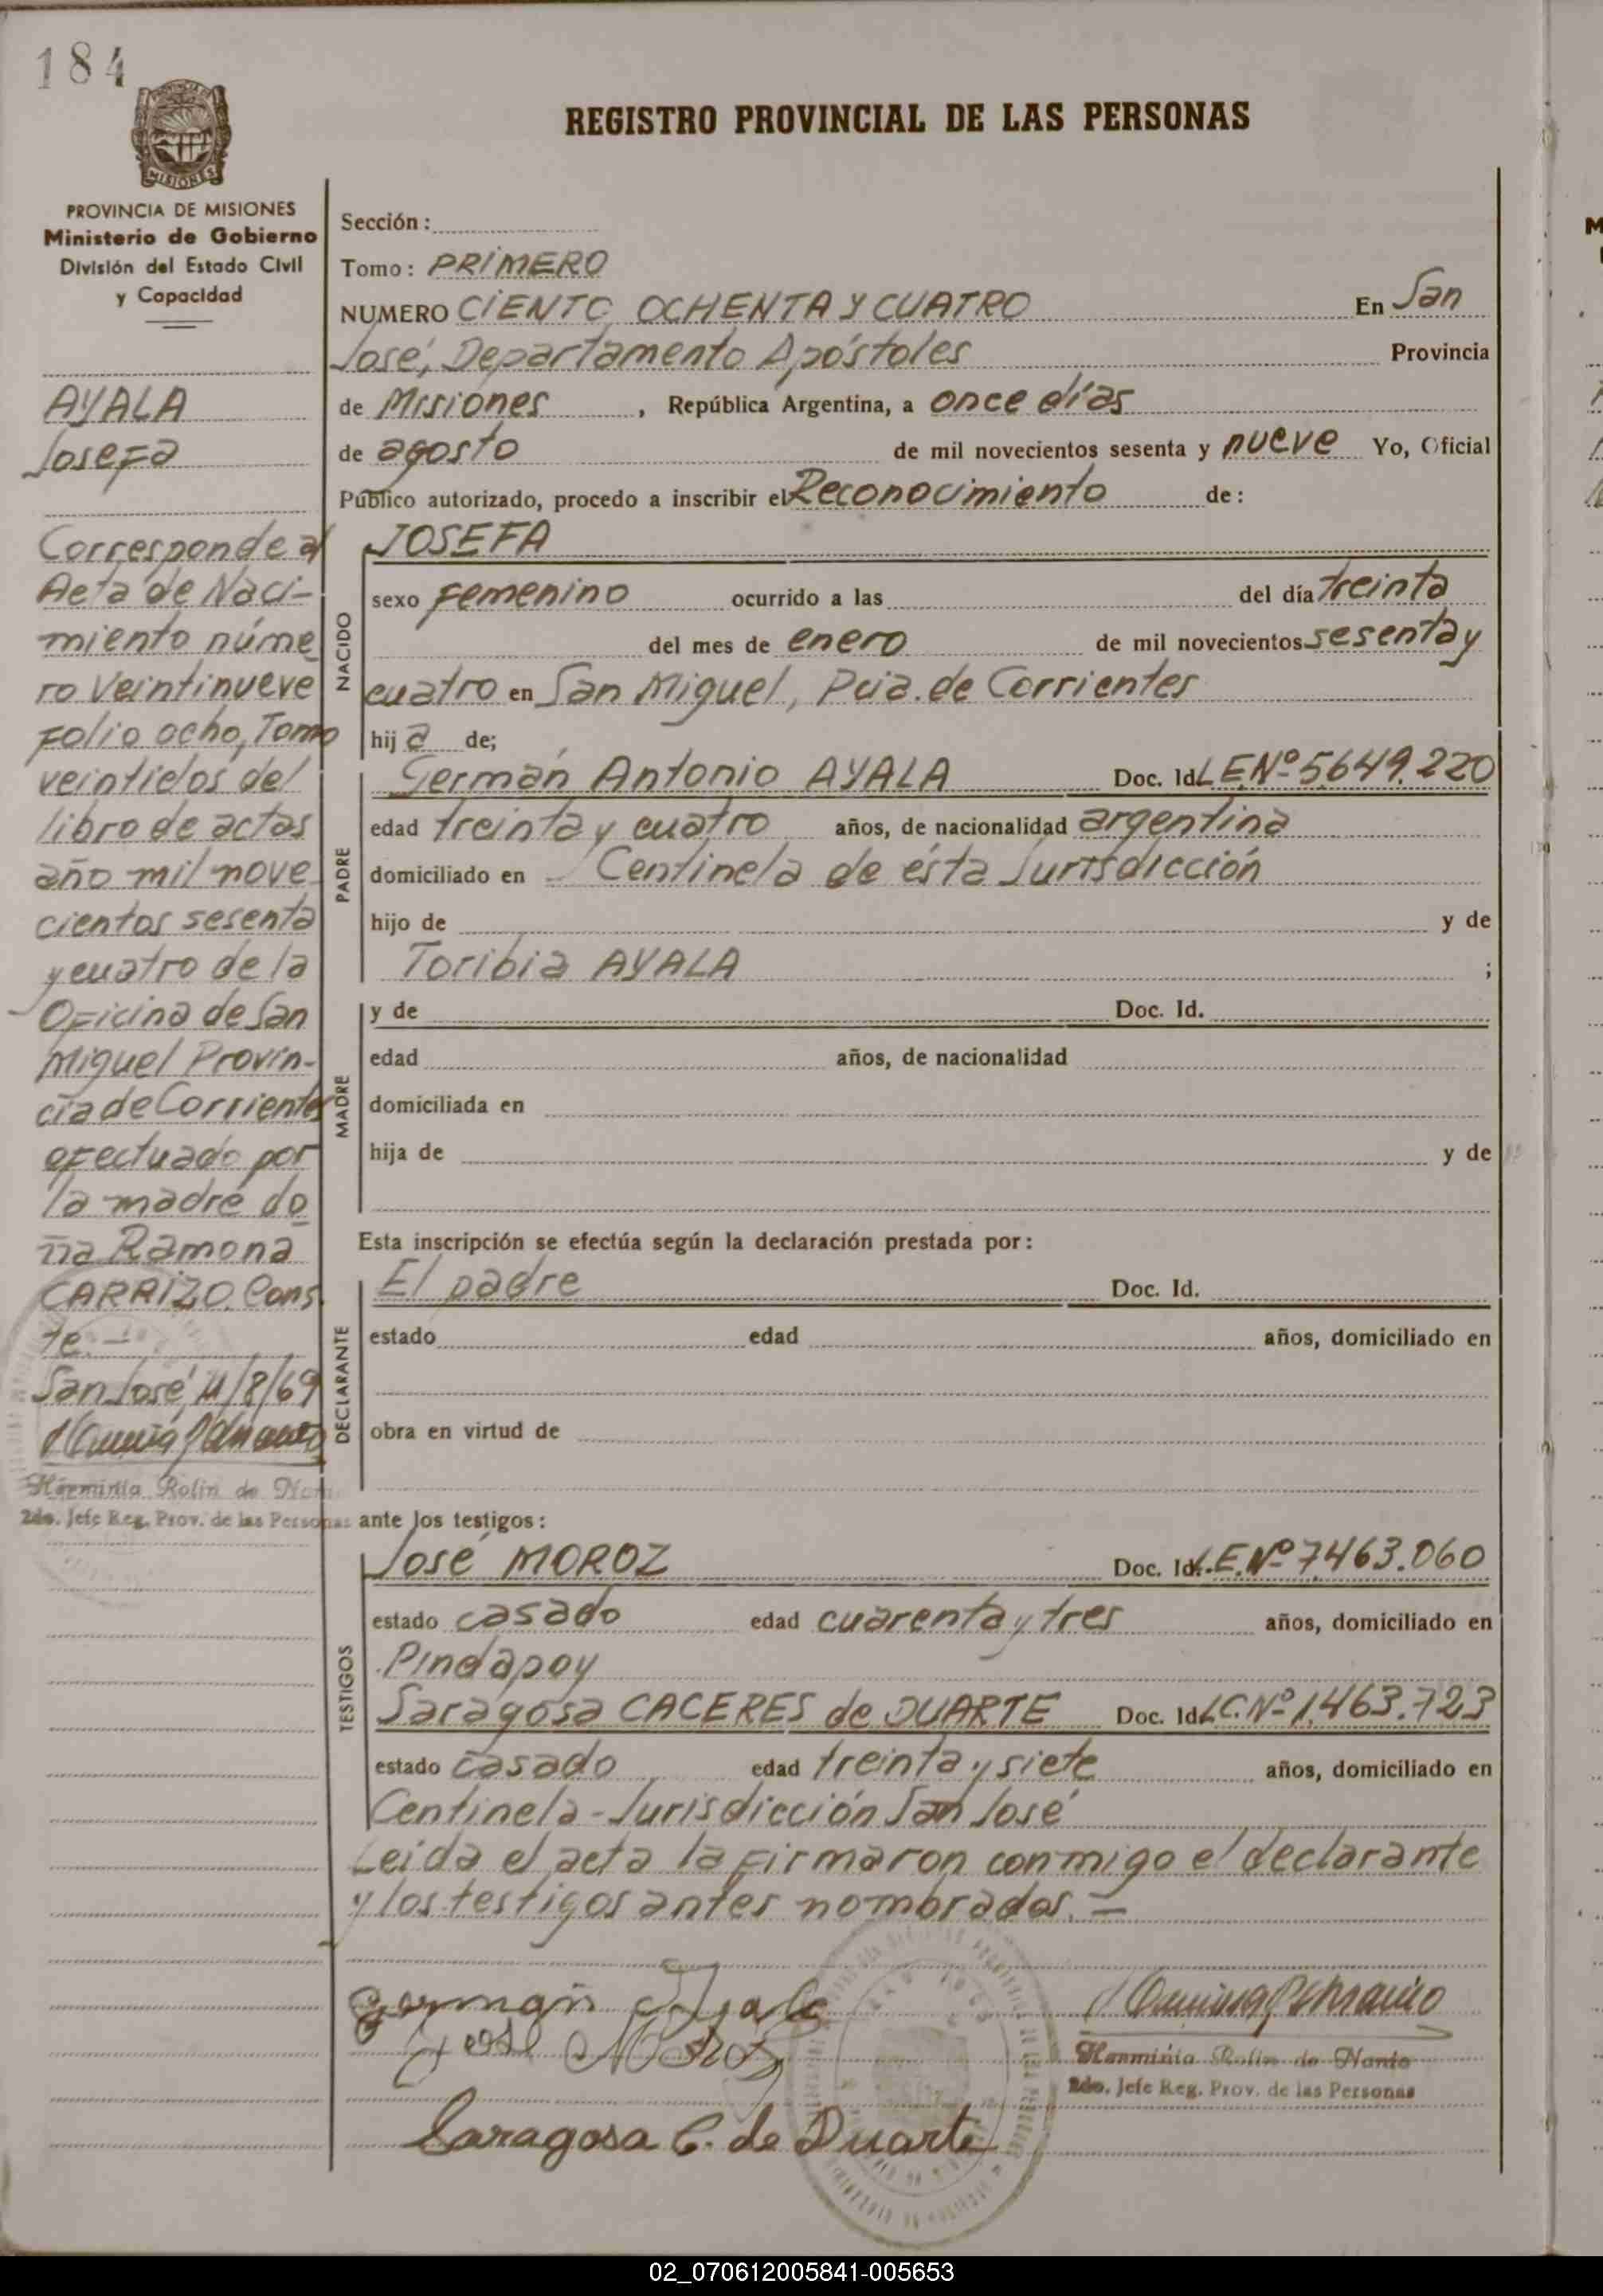 184
PROVINCIA DE MISIONES
Ministerio de Gobierno
División del Estado Civil
y Capacidad
AYALA
Josefa
Corresponde al
Acta de Naci-
miento núme
ro Veintinueve
Folio ocho, Tomo
veintidos del
libro de actas
año mil nove
cientos sesenta
y cuatro de la
Oficina de San
Miguel Provin-
cia de Corrientes
efectuado por
la madre do
ña Ramona
CARRIZO. Cons
te.-
San José, 11/8/69
Herminia Rolin de
2do. Jefe Reg. Prov. de las Personas
REGISTRO PROVINCIAL DE LAS PERSONAS
Sección:
Tomo: PRIMERO
NUMERO CIENTO OCHENTA Y CUATRO En San
José, Departamento Apóstoles Provincia
de Misiones, República Argentina, a once días
de agosto de mil novecientos sesenta y nueve Yo, Oficial
Público autorizado, procedo a inscribir el Reconocimiento de:
NACIDO
JOSEFA
sexo Femenino ocurrido a las del día treinta
del mes de enero de mil novecientos sesenta y
cuatro en San Miguel, Pcia. de Corrientes
hija de;
PADRE
Germán Antonio AYALA Doc. Id. L.E.Nº 5.649.220
edad treinta y cuatro años, de nacionalidad argentina
domiciliado en Centinela de ésta Jurisdicción
hijo de y de
Toribia AYALA ;
MADRE
y de Doc. Id.
edad años, de nacionalidad
domiciliada en
hija de y de
Esta inscripción se efectúa según la declaración prestada por:
DECLARANTE
El padre Doc. Id.
estado edad años, domiciliado en
obra en virtud de
ante los testigos:
TESTIGOS
José MOROZ Doc. Id. L.E.Nº 7.463.060
estado casado edad cuarenta y tres años, domiciliado en
Pindapoy
Saragosa CACERES de DUARTE Doc. Id. L.C.Nº 1.463.723
estado casado edad treinta y siete años, domiciliado en
Centinela - Jurisdicción San José
Leida el acta la firmaron conmigo el declarante
y los testigos antes nombrados.-
German Ayala
José Moroz
Saragosa C. de Duarte
Herminia Rolin de
2do. Jefe Reg. Prov. de las Personas
02_070612005841-005653